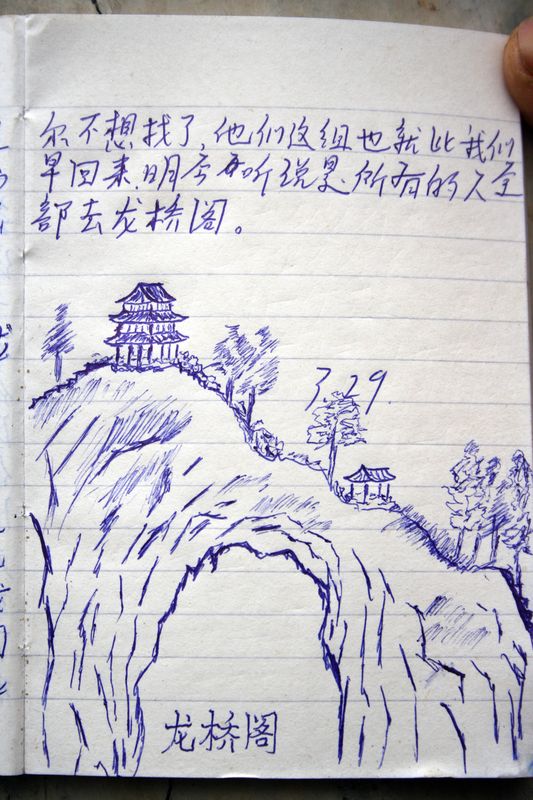 尔不想找了,他们这组也就比我们
早回来.明今 听说是.所有的人全
部去龙桥阁。
3.29.
龙桥阁